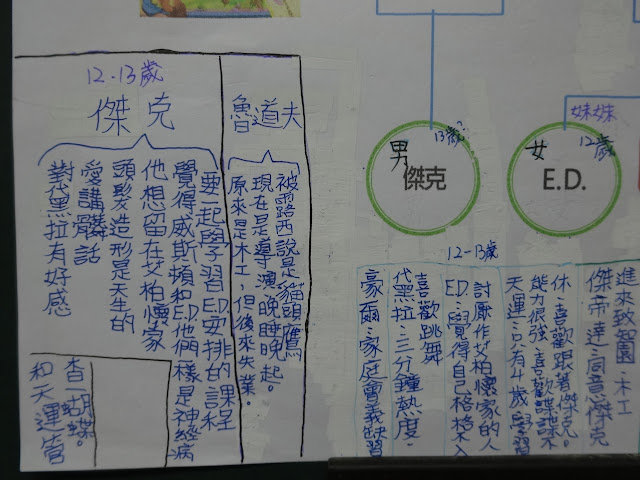 妹妹
12歲
女
E.D.
13歲?
男
傑克
12-13歲
進來致智園·木工
傑帝達·同意傑克
休·喜歡跟著傑克。
能力很強·喜歡諜諜不
天運·只有4歲 學習
討厭作艾柏懷家的人
E.D.·覺得自己格格不入
喜歡跳舞
代黑拉·三分鐘熱度·
豪爾·家庭會義缺習
魯道夫
被露西說是貓頭鷹
現在是導演,晚睡晚起。
原來是木工,但後來失業。
12-13歲
傑克
要一起學習E.D.安排的課程
覺得威斯頓和E.D.他們樣是神經病
他想留在艾柏懷家
頭髮造形是天生的
愛講髒話
對代黑拉有好感
蝴蝶。
和天運管